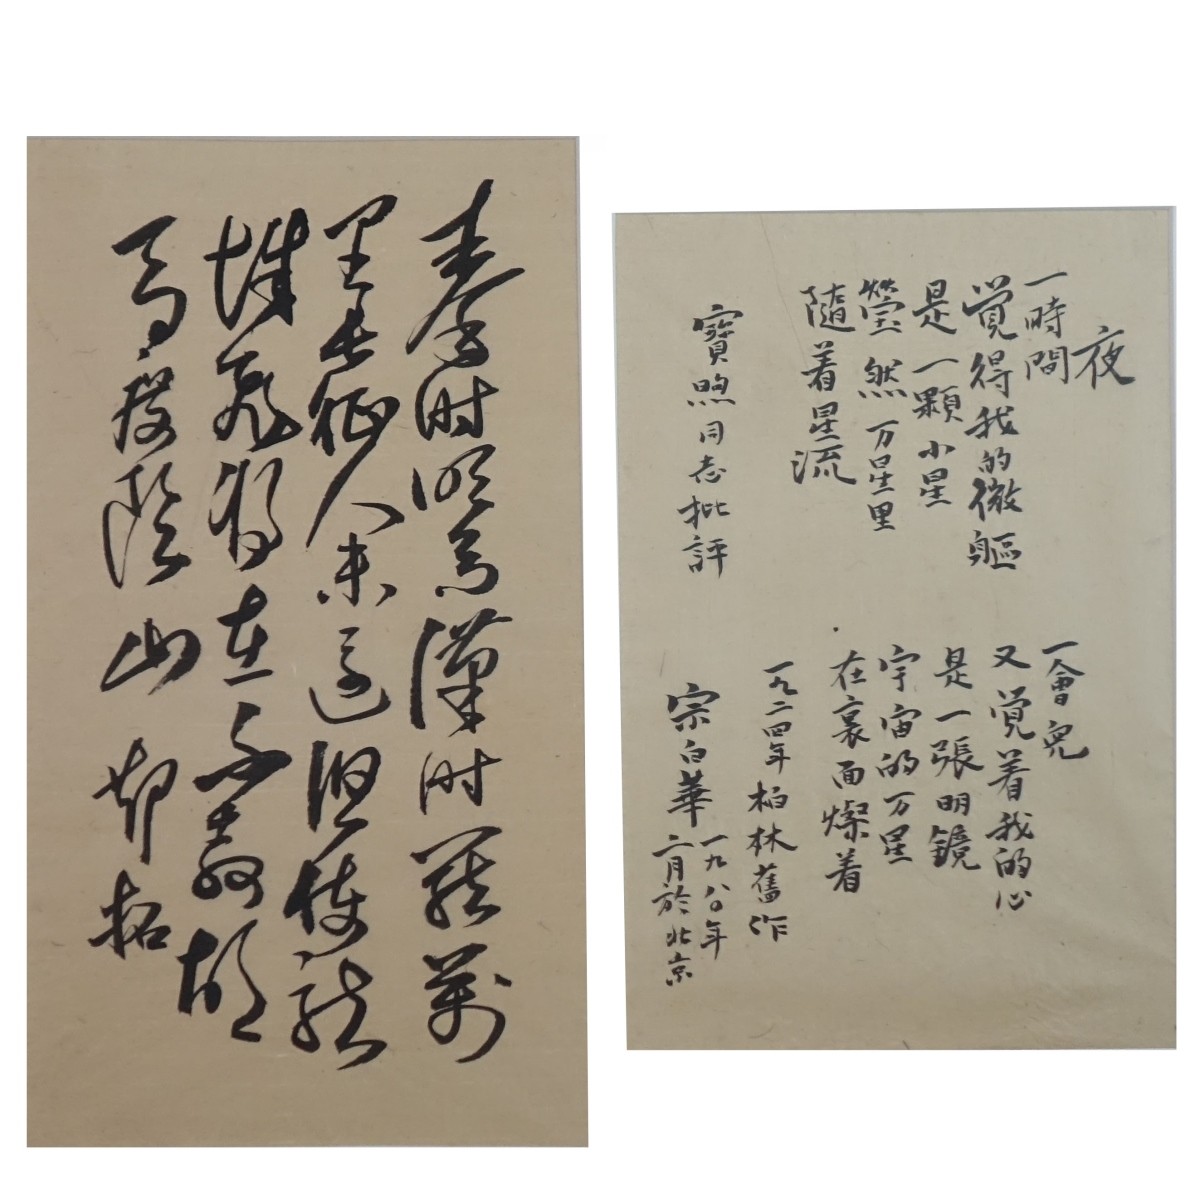 秦时明月漢时関萬
里长征人未還但使龍
城飛将在不教胡
馬度陰山
夜
一時間
覚得我的微軀
是一顆小星
莹然万星里
隨着星流
一會兒
又覚着我的心
是一張明鏡
宇宙的万星
在裏面燦着
一九二四年柏林舊作
寶煦同志批評
宗白華
一九八〇年
二月於北京